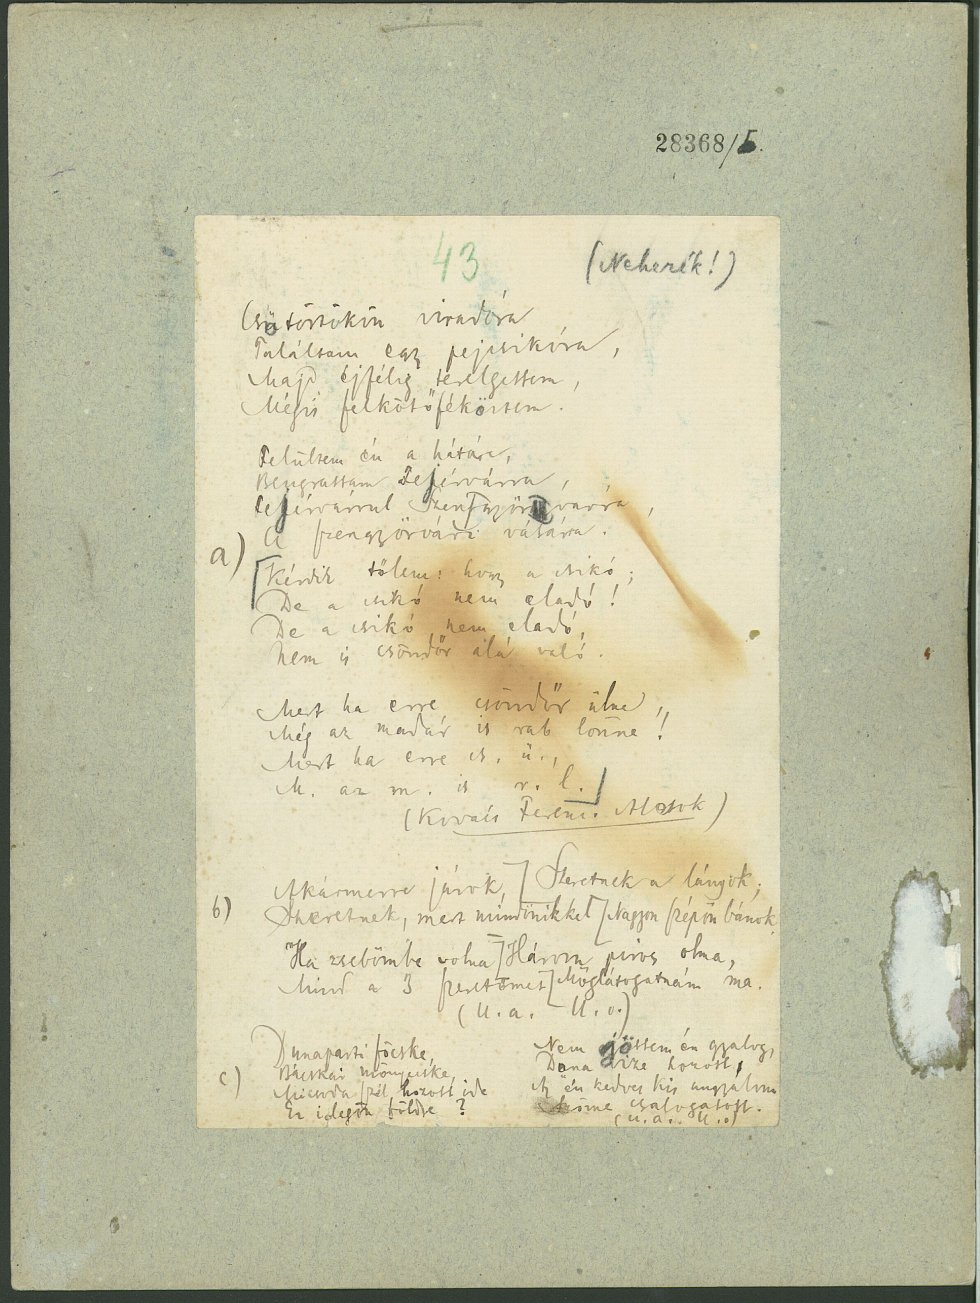 28368/5.
43
(Neherék!)
Csütörtökön viradóra
Találtam egy pejcsikóra,
Majd éjfélig terelgettem,
Mégis felkötőféköztem.
Felültem én a hátára,
Beugrattam Fejérvárra,
Fejérvárrul Szentgyörvárra,
A szengyörvári vásárra.
a)
Kérdik tőlem: hogy a csikó;
De a csikó nem eladó!
De a csikó nem eladó,
Nem is csöndőr alá való.
Mert ha erre csöndőr ülne,
Még az madár is rab lönne!
Mert ha erre cs. ü.,
M. az m. is r. l.
(Kovács Ferenc. Alsok)
b)
Akármerre járok, Szeretnek a lányok;
Szeretnek, mert mindönikkel Nagyon szépön bánok.
Ha zsebömbe volna Három piros alma,
Mind a 3 szeretömet Möglátogatnám ma.
(U. a. U. o.)
c)
Dunaparti föcske,
Bácskai mönyecske,
Micsoda szél hozott ide
Ez idegön földre?
Nem jöttem én gyalog,
Duna vize hozott,
Az én kedves kis angyalom
Szöme csalogatott.
(U. a. U. o.)